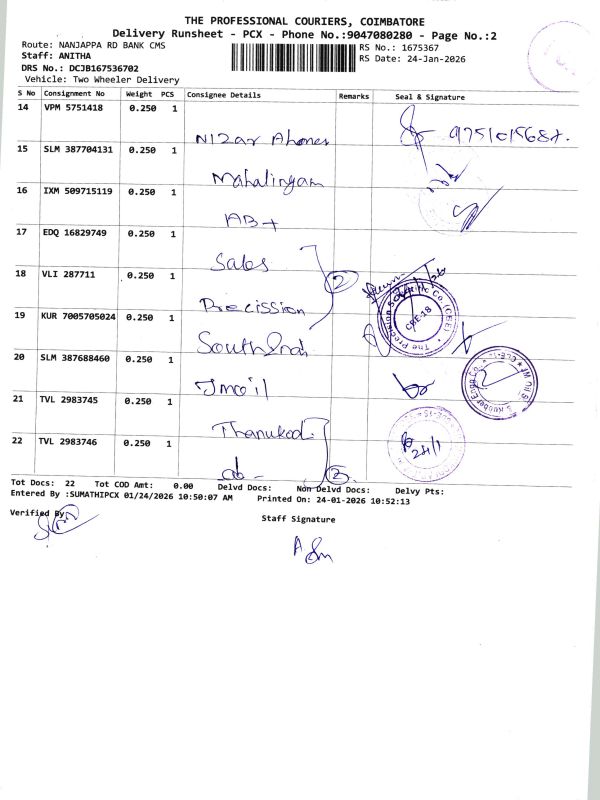 THE PROFESSIONAL COURIERS, COIMBATORE
Delivery Runsheet - PCX - Phone No.:9047080280 - Page No.:2
Route: NANJAPPA RD BANK CMS
RS No.: 1675367
Staff: ANITHA
RS Date: 24-Jan-2026
DRS No.: DCJB167536702
Vehicle: Two Wheeler Delivery
S No Consignment No Weight PCS Consignee Details Remarks Seal & Signature
14 VPM 5751418 0.250 1
Nizar Ahmed
15 SLM 387704131 0.250 1
Mahalingam
16 IXM 509715119 0.250 1
AB+
17 EDQ 16829749 0.250 1
Sales
18 VLI 287711 0.250 1 2
Precission
19 KUR 7005705024 0.250 1
South Indi
CBE-18
20 SLM 387688460 0.250 1
Jmoil
21 TVL 2983745 0.250 1
Thanukodi
24/1
22 TVL 2983746 0.250 1
do- 2
Tot Docs: 22 Tot COD Amt: 0.00 Delvd Docs: Non Delvd Docs: Delvy Pts:
Entered By :SUMATHIPCX 01/24/2026 10:50:07 AM Printed On: 24-01-2026 10:52:13
Verified By
Staff Signature